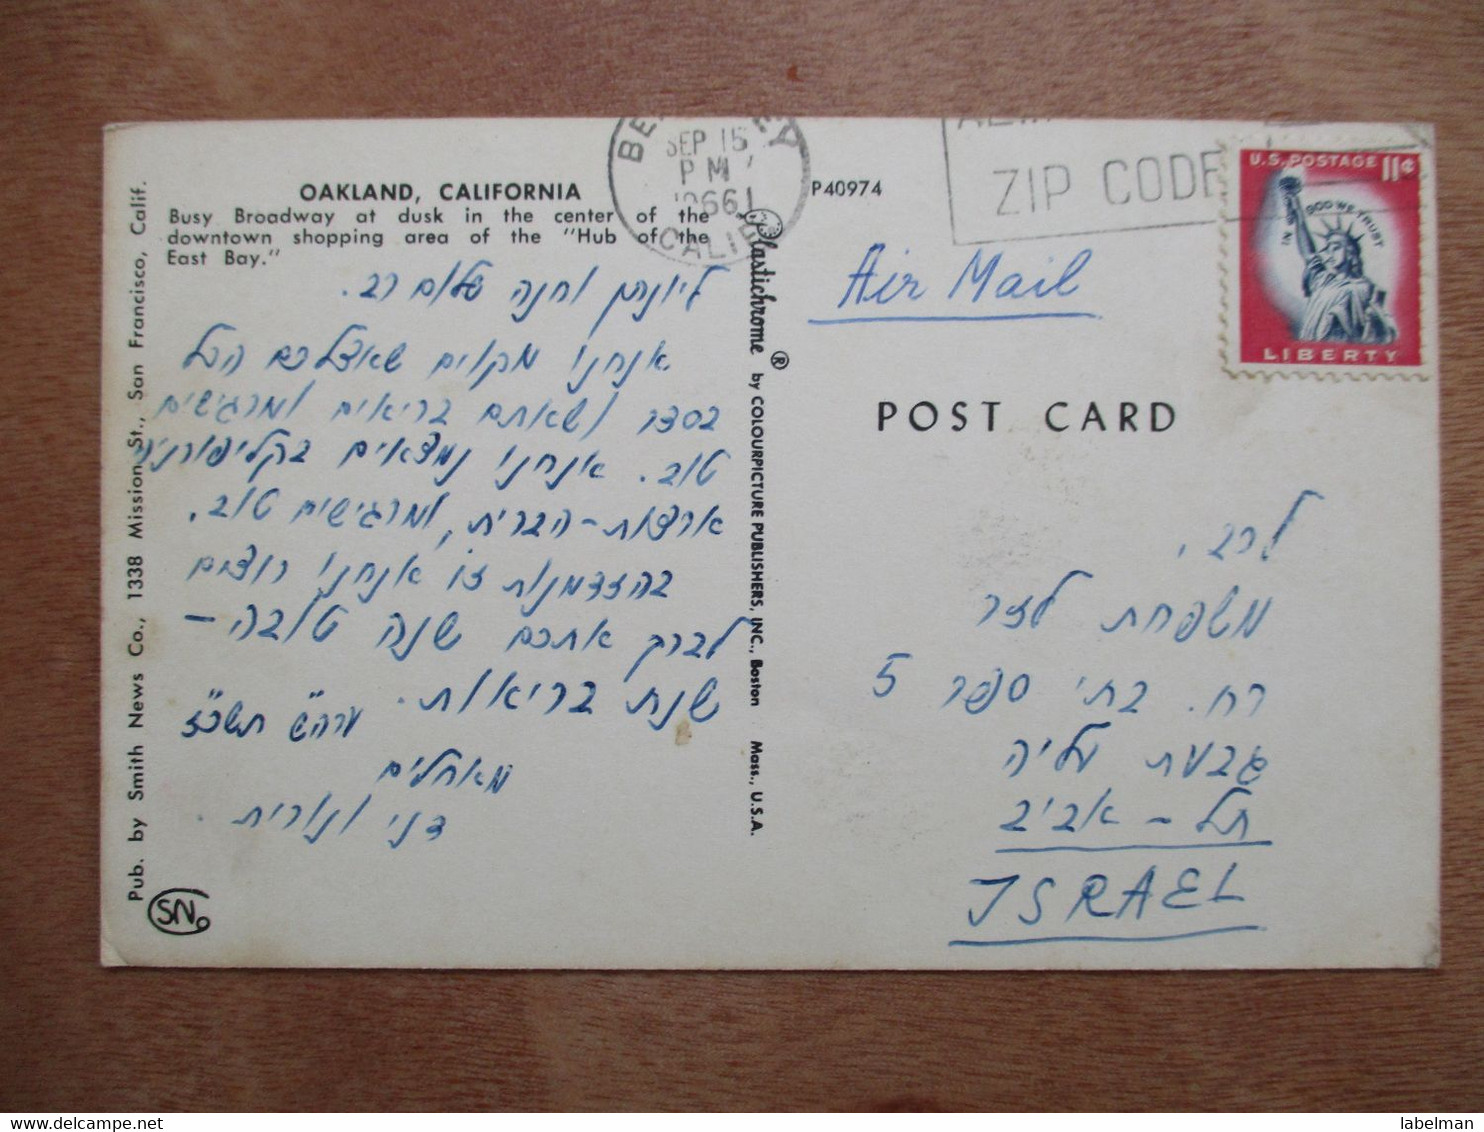 OAKLAND, CALIFORNIA
Busy Broadway at dusk in the center of the
downtown shopping area of the "Hub of the
East Bay."
ליונתן וחנה שלום רב.
אנחנו מקוים שאצלכם הכל
בסדר ושאתם בריאים ומרגישים
טוב. אנחנו נמצאים בקליפורניה
ארצות-הברית, ומרגישים טוב.
בהזדמנות זו אנחנו רוצים
לברך אתכם שנה טובה –
שנת בריאות.
ערה"ש תשכ"ז
מאחלים
דני ונורית.
Pub. by Smith News Co., 1338 Mission St., San Francisco, Calif.
SN
Plastichrome ® by COLOURPICTURE PUBLISHERS, INC., Boston Mass., U.S.A.
P40974
SEP 15
PM
1966
CALIF
ZIP CODE
U.S. POSTAGE 11¢
IN GOD WE TRUST
LIBERTY
Air Mail
POST CARD
לכב.
משפחת לזר
רח. בתי ספר 5
גבעת עליה
תל-אביב
ISRAEL
labelman
www.delcampe.net